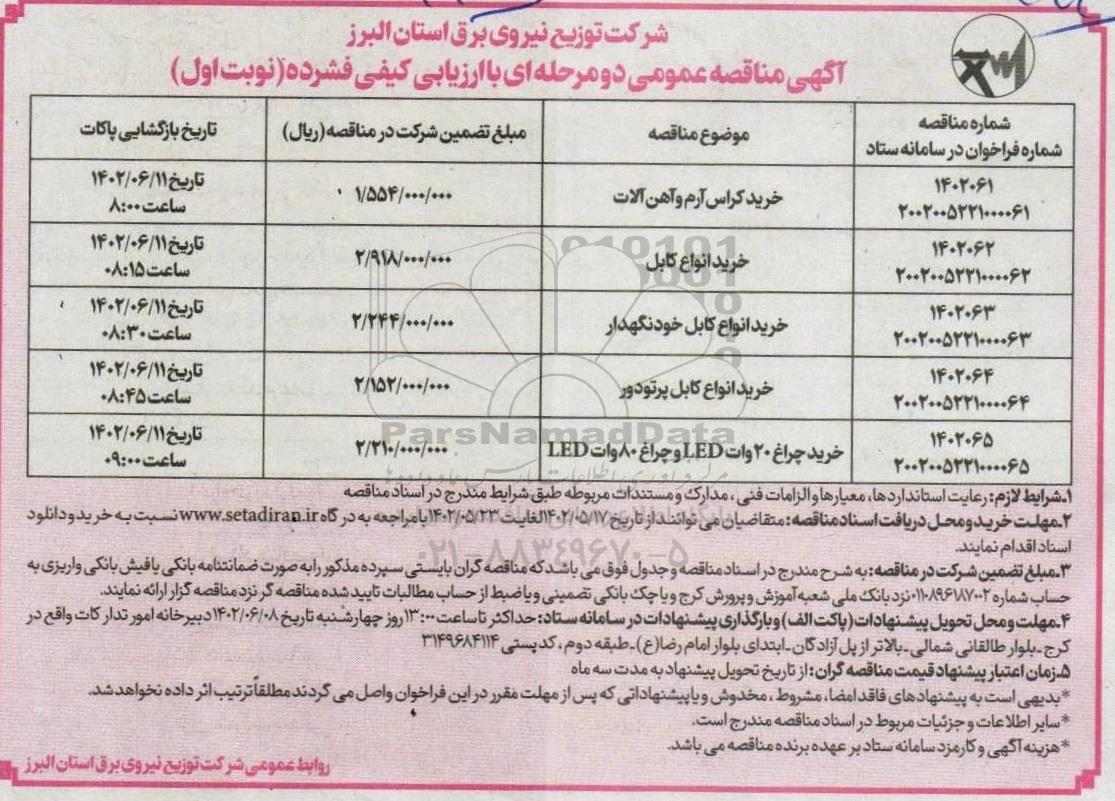 شرکت توزیع نیروی برق استان البرز
آگهی مناقصه عمومی دو مرحله ای با ارزیابی کیفی فشرده (نوبت اول)
شماره مناقصه
شماره فراخوان در سامانه ستاد
موضوع مناقصه
مبلغ تضمین شرکت در مناقصه (ریال)
تاریخ بازگشایی پاکات
۱۴۰۲۰۶۱
۲۰۰۲۰۰۵۲۲۱۰۰۰۰۶۱
خرید کراس آرم و آهن آلات
۱/۵۵۴/۰۰۰/۰۰۰
تاریخ ۱۴۰۲/۰۶/۱۱
ساعت ۸:۰۰
۱۴۰۲۰۶۲
۲۰۰۲۰۰۵۲۲۱۰۰۰۰۶۲
خرید انواع کابل
۲/۹۱۸/۰۰۰/۰۰۰
تاریخ ۱۴۰۲/۰۶/۱۱
ساعت ۰۸:۱۵
۱۴۰۲۰۶۳
۲۰۰۲۰۰۵۲۲۱۰۰۰۰۶۳
خرید انواع کابل خودنگهدار
۲/۲۴۴/۰۰۰/۰۰۰
تاریخ ۱۴۰۲/۰۶/۱۱
ساعت ۰۸:۳۰
۱۴۰۲۰۶۴
۲۰۰۲۰۰۵۲۲۱۰۰۰۰۶۴
خرید انواع کابل پرتودور
۲/۱۵۲/۰۰۰/۰۰۰
تاریخ ۱۴۰۲/۰۶/۱۱
ساعت ۰۸:۴۵
۱۴۰۲۰۶۵
۲۰۰۲۰۰۵۲۲۱۰۰۰۰۶۵
خرید چراغ ۲۰ وات LED و چراغ ۸۰ وات LED
۲/۲۱۰/۰۰۰/۰۰۰
تاریخ ۱۴۰۲/۰۶/۱۱
ساعت ۰۹:۰۰
ParsNamadData
۰۲۱-۸۸۳۴۹۶۷۰-۵
۱ـ شرایط لازم: رعایت استانداردها، معیارها و الزامات فنی، مدارک و مستندات مربوطه طبق شرایط مندرج در اسناد مناقصه
۲ـ مهلت خرید و محل دریافت اسناد مناقصه: متقاضیان می توانند از تاریخ ۱۴۰۲/۰۵/۱۷ لغایت ۱۴۰۲/۰۵/۲۳ با مراجعه به درگاه www.setadiran.ir نسبت به خرید و دانلود
اسناد اقدام نمایند.
۳ـ مبلغ تضمین شرکت در مناقصه: به شرح مندرج در اسناد مناقصه و جدول فوق می باشد که مناقصه گران بایستی سپرده مذکور را به صورت ضمانتنامه بانکی یا فیش بانکی واریزی به
حساب شماره ۰۱۱۰۸۹۶۱۸۷۰۰۲ نزد بانک ملی شعبه آموزش و پرورش کرج و یا چک بانکی تضمینی و یا ضبط از حساب مطالبات تایید شده مناقصه گر نزد مناقصه گزار ارائه نمایند.
۴ـ مهلت و محل تحویل پیشنهادات (پاکت الف) و بارگذاری پیشنهادات در سامانه ستاد: حداکثر تا ساعت ۱۳:۰۰ روز چهارشنبه تاریخ ۱۴۰۲/۰۶/۰۸ دبیرخانه امور تدارکات واقع در
کرج ـ بلوار طالقانی شمالی ـ بالاتر از پل آزادگان ـ ابتدای بلوار امام رضا(ع) ـ طبقه دوم، کد پستی ۳۱۴۹۶۸۴۱۱۴
۵ـ زمان اعتبار پیشنهاد قیمت مناقصه گران: از تاریخ تحویل پیشنهاد به مدت سه ماه
*بدیهی است به پیشنهادهای فاقد امضا، مشروط، مخدوش و یا پیشنهاداتی که پس از مهلت مقرر در این فراخوان واصل می گردند مطلقاً ترتیب اثر داده نخواهد شد.
*سایر اطلاعات و جزئیات مربوط در اسناد مناقصه مندرج است.
*هزینه آگهی و کارمزد سامانه ستاد بر عهده برنده مناقصه می باشد.
روابط عمومی شرکت توزیع نیروی برق استان البرز